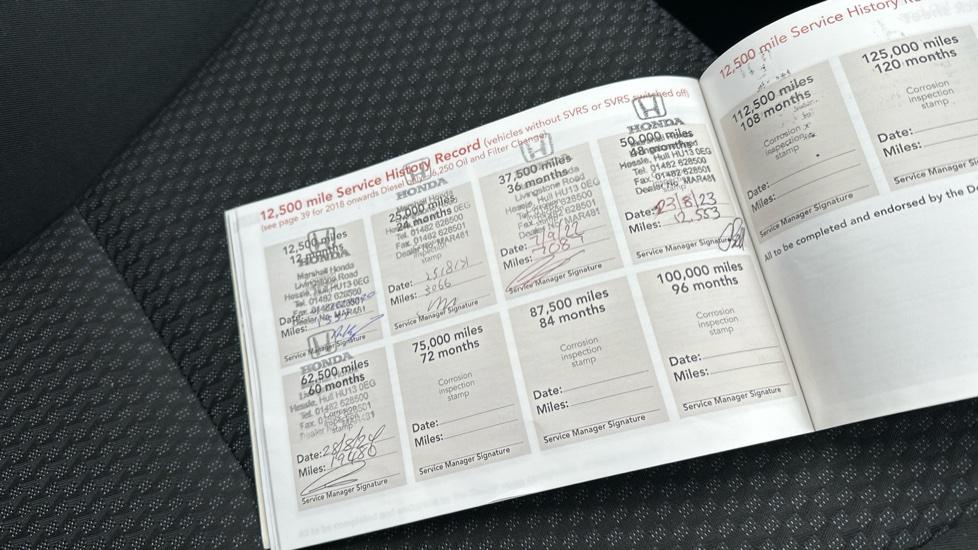 12,500 mile Service History Record (vehicles without SVRS or SVRS switched off)
(see page 39 for 2018 onwards Diesel 6,250 Oil and Filter Change)
12,500 miles
12 months
HONDA
Marshall Honda
Livingstone Road
Hessle, Hull HU13 0EG
Tel. 01482 628500
Fax. 01482 628501
Dealer No. MAR481
Date:
Miles:
Service Manager Signature
HONDA
25,000 miles
24 months
Hessle, Hull HU13 0EG
Tel. 01482 628500
Fax. 01482 628501
Dealer No. MAR481
stamp
Date: 25/8/21
Miles: 3066
Service Manager Signature
37,500 miles
36 months
Livingstone Road
Hessle, Hull HU13 0EG
Tel. 01482 628500
Fax. 01482 628501
Dealer No. MAR481
Date:
Miles:
Service Manager Signature
HONDA
50,000 miles
48 months
Hessle, Hull HU13 0EG
Tel. 01482 628500
Fax. 01482 628501
Dealer No. MAR481
Date: 23/8/23
Miles: 12,553
Service Manager Signature
HONDA
62,500 miles
60 months
Hessle, Hull HU13 0EG
Tel. 01482 628500
Date: 28/8/24
Miles: 19480
Service Manager Signature
75,000 miles
72 months
Corrosion
inspection
stamp
Date:
Miles:
Service Manager Signature
87,500 miles
84 months
Corrosion
inspection
stamp
Date:
Miles:
Service Manager Signature
100,000 miles
96 months
Corrosion
inspection
stamp
Date:
Miles:
Service Manager Signature
12,500 mile Service History
112,500 miles
108 months
Corrosion
inspection
stamp
Date:
Miles:
Service Manager Signature
125,000 miles
120 months
Corrosion
inspection
stamp
Date:
Miles:
Service Manager
All to be completed and endorsed by the